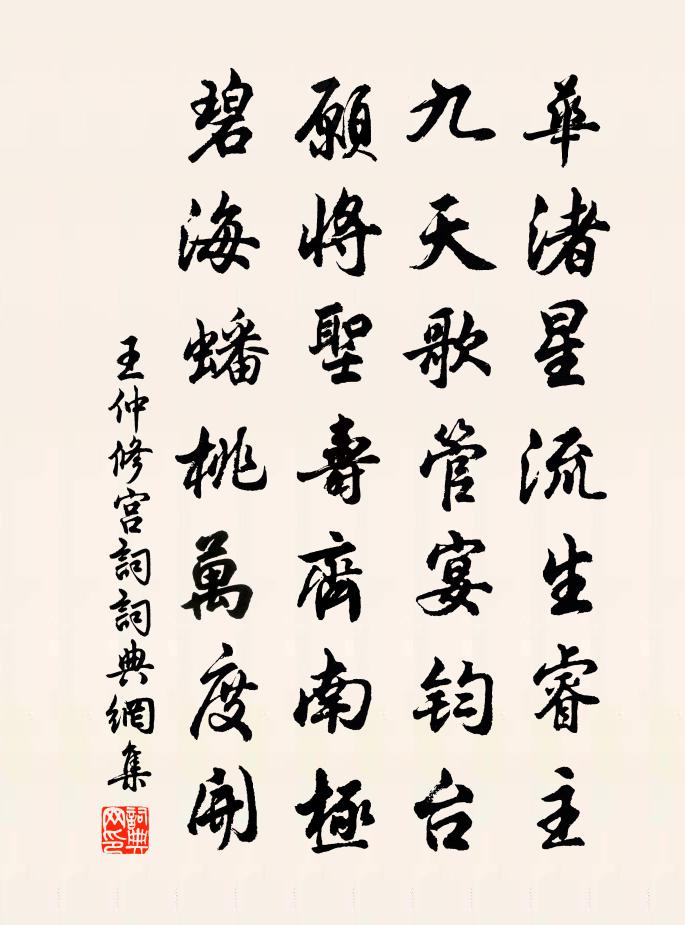 華渚星流生睿主
九天歌管宴鈞台
願將聖壽齊南極
碧海蟠桃萬度開
王仲修宮詞詞典網集
詞典
网印